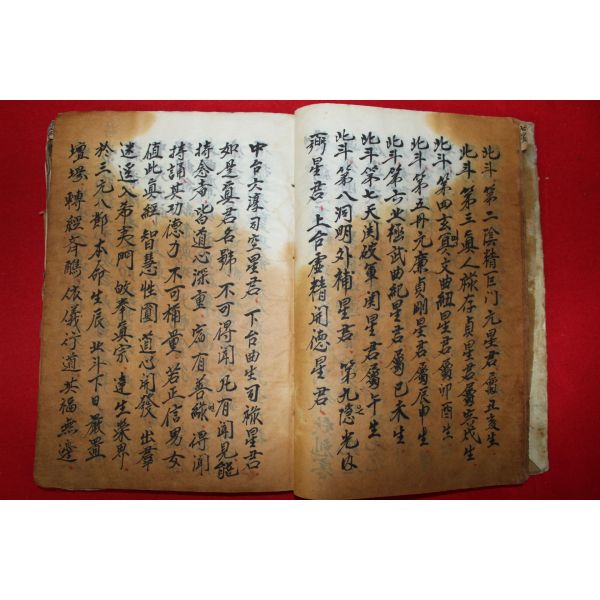 北斗第二陰精巨門元星君屬丑亥生
北斗第三眞人祿存貞星君屬寅戌生
北斗第四玄冥文曲紐星君屬卯酉生
北斗第五丹元廉貞剛星君屬辰申生
北斗第六北極武曲紀星君屬巳未生
北斗第七天関破軍関星君屬午生
北斗第八洞明外補星君 第九隱光內
弼星君 上台虛精開德星君
中台六淳司空星君 下台曲生司祿星君
如是眞君名號不可得聞凡有聞見能
持念者皆道心深重宿有善緣得聞
持誦其功德力不可稱量若正信男女
值此眞經智慧性圓道心開發出羣
迷逕入希夷門敀奉眞宗達生榮界
於三元八節本命生辰北斗下日嚴置
壇塲轉經齋醮依儀行道其福無邊